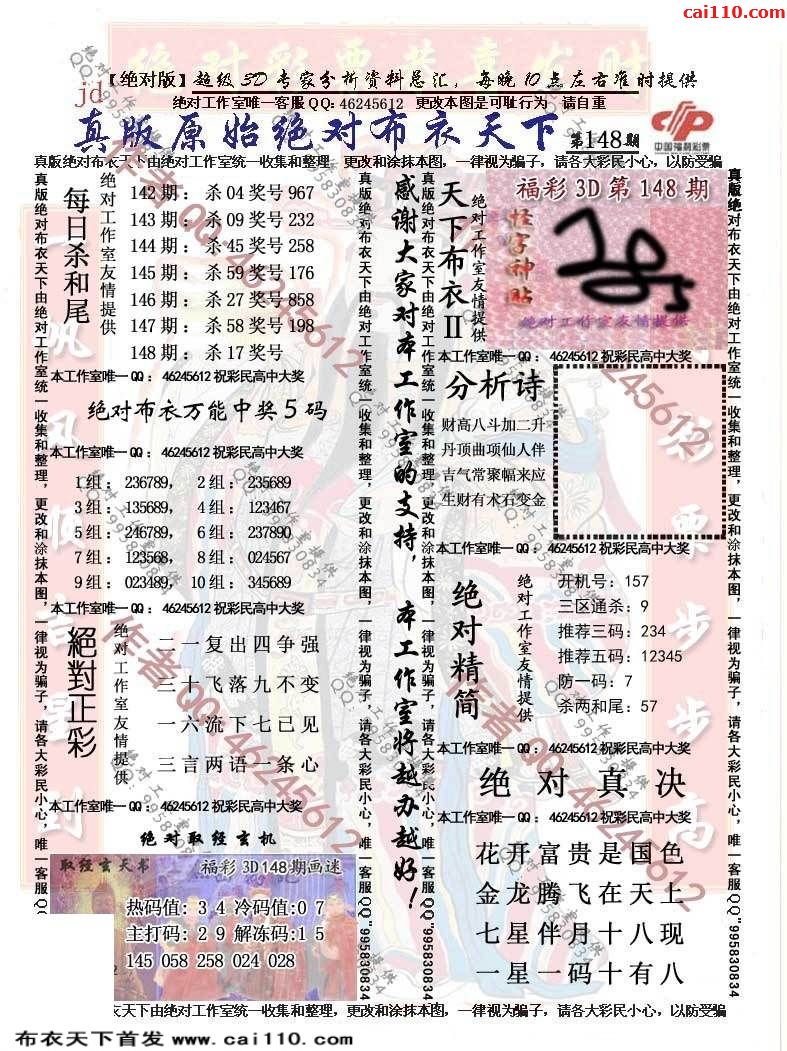 cai110.com
【绝对版】超级3D专家分析资料总汇，每晚10点左右准时提供
jd
绝对工作室唯一客服QQ：46245612 更改本图是可耻行为 请自重
真版原始绝对布衣天下 第148期
中国福利彩票
真版绝对布衣天下由绝对工作室统一收集和整理，更改和涂抹本图，一律视为骗子，请各大彩民小心，以防受骗
每日杀和尾
绝对工作室友情提供
142期：杀04奖号967
143期：杀09奖号232
144期：杀45奖号258
145期：杀59奖号176
146期：杀27奖号858
147期：杀58奖号198
148期：杀17奖号
本工作室唯一QQ：46245612祝彩民高中大奖
绝对布衣万能中奖5码
本工作室唯一QQ：46245612祝彩民高中大奖
1组：236789， 2组：235689
3组：135689， 4组：123467
5组：246789， 6组：237890
7组：123568， 8组：024567
9组：023489， 10组：345689
本工作室唯一QQ：46245612祝彩民高中大奖
絕對正彩
绝对工作室友情提供
二一复出四争强
三十飞落九不变
一六流下七已见
三言两语一条心
本工作室唯一QQ：46245612祝彩民高中大奖
绝对取经玄机
取经玄天书 福彩3D148期画迷
热码值：34冷码值：07
主打码：29解冻码：15
145 058 258 024 028
感谢大家对本工作室的支持，本工作室将越办越好！
天下布衣II
绝对工作室友情提供
福彩3D第148期
怪字神贴
绝对工作室友情提供
本工作室唯一QQ：46245612祝彩民高中大奖
分析诗
财高八斗加二升
丹顶曲项仙人伴
吉气常聚幅来应
生财有术石变金
本工作室唯一QQ：46245612祝彩民高中大奖
绝对精简
绝对工作室友情提供
开机号：157
三区通杀：9
推荐三码：234
推荐五码：12345
防一码：7
杀两和尾：57
本工作室唯一QQ：46245612祝彩民高中大奖
绝对真决
本工作室唯一QQ：46245612祝彩民高中大奖
花开富贵是国色
金龙腾飞在天上
七星伴月十八现
一星一码十有八
真版绝对布衣天下由绝对工作室统一收集和整理，更改和涂抹本图，一律视为骗子，请各大彩民小心，唯一客服QQ"995830834
衣天下由绝对工作室统一收集和整理，更改和涂抹本图，一律视为骗子，请各大彩民小心，以防受骗
布衣天下首发 www.cai110.com